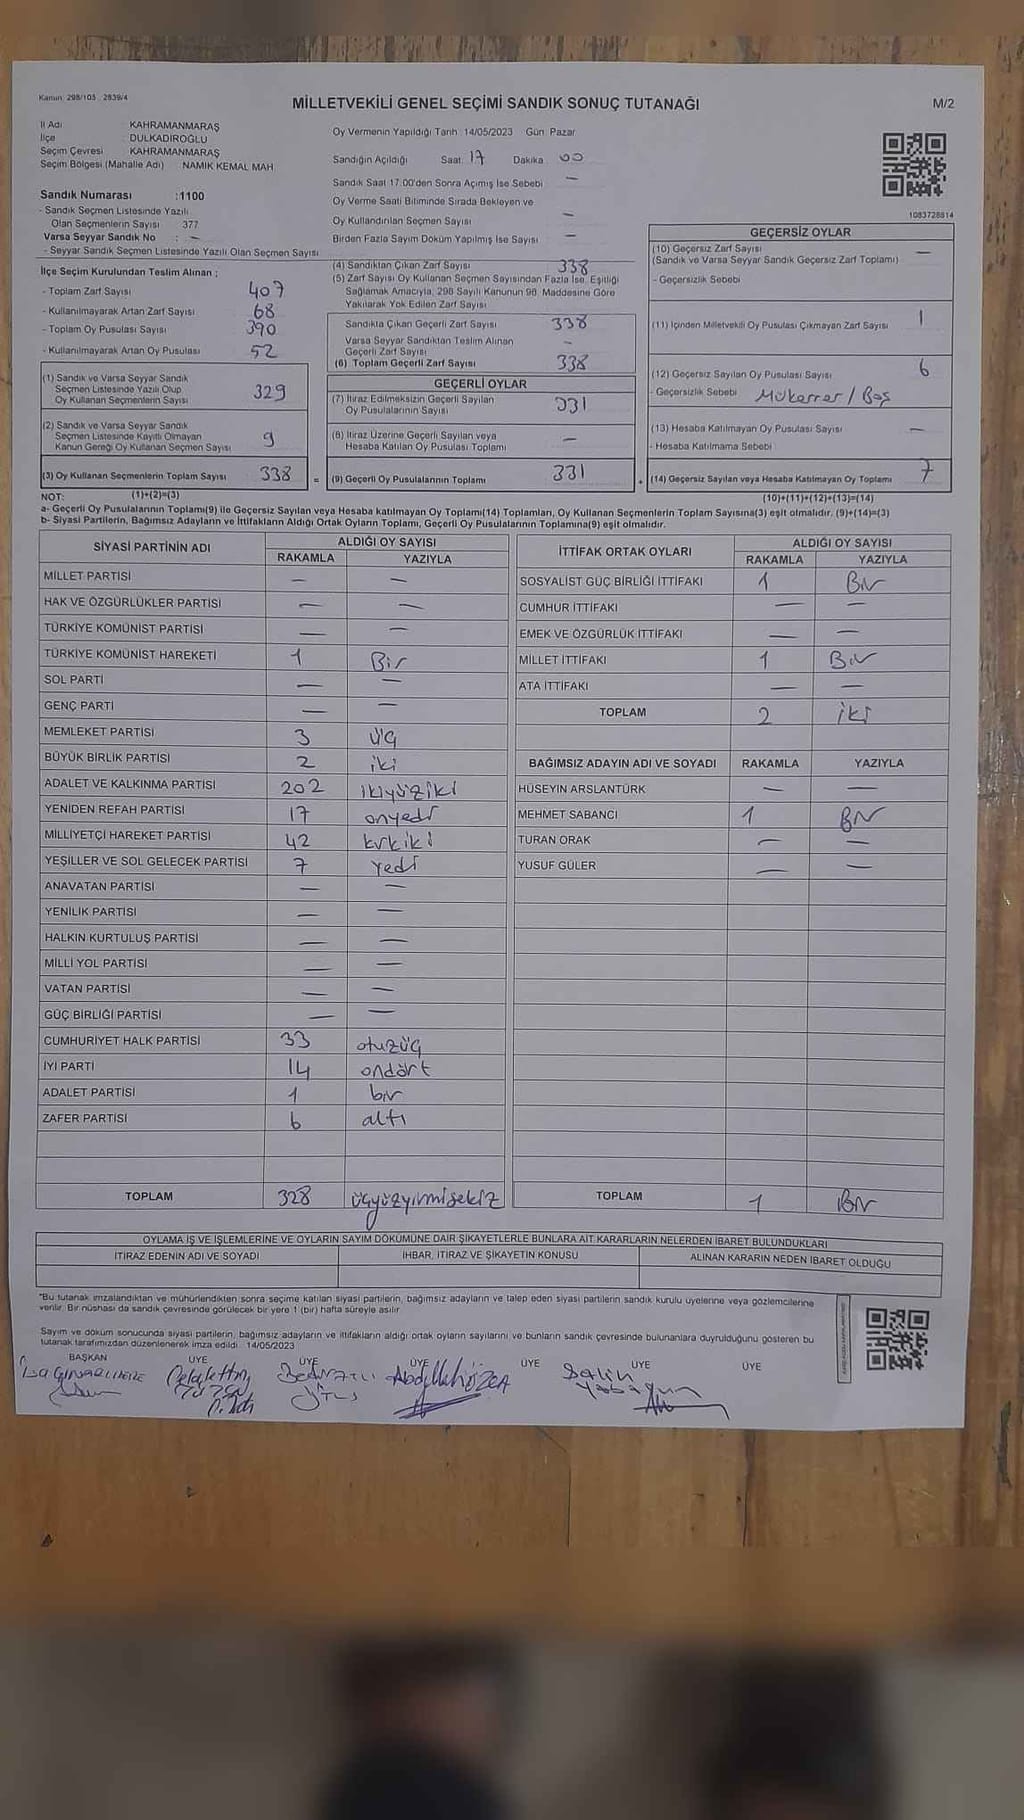 Kanun: 298/105 , 2839/4
MİLLETVEKİLİ GENEL SEÇİMİ SANDIK SONUÇ TUTANAĞI
M/2
İl Adı : KAHRAMANMARAŞ
İlçe : DULKADİROĞLU
Seçim Çevresi : KAHRAMANMARAŞ
Seçim Bölgesi (Mahalle Adı) : NAMIK KEMAL MAH
Sandık Numarası :1100
- Sandık Seçmen Listesinde Yazılı
Olan Seçmenlerin Sayısı : 377
Varsa Seyyar Sandık No : —
- Seyyar Sandık Seçmen Listesinde Yazılı Olan Seçmen Sayısı
Oy Vermenin Yapıldığı Tarih :14/05/2023 Gün: Pazar
Sandığın Açıldığı Saat: 17 Dakika: 00
Sandık Saat 17:00'den Sonra Açımış İse Sebebi : —
Oy Verme Saati Bitiminde Sırada Bekleyen ve
Oy Kullandırılan Seçmen Sayısı —
Birden Fazla Sayım Döküm Yapılmış İse Sayısı —
1083728814
İlçe Seçim Kurulundan Teslim Alınan ;
- Toplam Zarf Sayısı 407
- Kullanılmayarak Artan Zarf Sayısı 68
- Toplam Oy Pusulası Sayısı 390
- Kullanılmayarak Artan Oy Pusulası 52
(1) Sandık ve Varsa Seyyar Sandık
Seçmen Listesinde Yazılı Olup
Oy Kullanan Seçmenlerin Sayısı 329
(2) Sandık ve Varsa Seyyar Sandık
Seçmen Listesinde Kayıtlı Olmayan
Kanun Gereği Oy Kullanan Seçmen Sayısı 9
(3) Oy Kullanan Seçmenlerin Toplam Sayısı 338
(1)+(2)=(3)
(4) Sandıktan Çıkan Zarf Sayısı 338
(5) Zarf Sayısı Oy Kullanan Seçmen Sayısından Fazla İse, Eşitliği
Sağlamak Amacıyla, 298 Sayılı Kanunun 98. Maddesine Göre
Yakılarak Yok Edilen Zarf Sayısı
Sandıkta Çıkan Geçerli Zarf Sayısı 338
Varsa Seyyar Sandıktan Teslim Alınan
Geçerli Zarf Sayısı —
(6) Toplam Geçerli Zarf Sayısı 338
GEÇERLİ OYLAR
(7) İtiraz Edilmeksizin Geçerli Sayılan
Oy Pusulalarının Sayısı 331
(8) İtiraz Üzerine Geçerli Sayılan veya
Hesaba Katılan Oy Pusulası Toplamı —
= (9) Geçerli Oy Pusulalarının Toplamı 331
GEÇERSİZ OYLAR
(10) Geçersiz Zarf Sayısı —
(Sandık ve Varsa Seyyar Sandık Geçersiz Zarf Toplamı)
- Geçersizlik Sebebi
(11) İçinden Milletvekili Oy Pusulası Çıkmayan Zarf Sayısı 1
(12) Geçersiz Sayılan Oy Pusulası Sayısı 6
- Geçersizlik Sebebi Mükerrer / Boş
(13) Hesaba Katılmayan Oy Pusulası Sayısı —
- Hesaba Katılmama Sebebi
+ (14) Geçersiz Sayılan veya Hesaba Katılmayan Oy Toplamı 7
(10)+(11)+(12)+(13)=(14)
NOT:
a- Geçerli Oy Pusulalarının Toplamı(9) ile Geçersiz Sayılan veya Hesaba katılmayan Oy Toplamı(14) Toplamları, Oy Kullanan Seçmenlerin Toplam Sayısına(3) eşit olmalıdır. (9)+(14)=(3)
b- Siyasi Partilerin, Bağımsız Adayların ve İttifakların Aldığı Ortak Oyların Toplamı, Geçerli Oy Pusulalarının Toplamına(9) eşit olmalıdır.
SİYASİ PARTİNİN ADI ALDIĞI OY SAYISI
RAKAMLA YAZIYLA
MİLLET PARTİSİ — —
HAK VE ÖZGÜRLÜKLER PARTİSİ — —
TÜRKİYE KOMÜNİST PARTİSİ — —
TÜRKİYE KOMÜNİST HAREKETİ 1 Bir
SOL PARTİ — —
GENÇ PARTİ — —
MEMLEKET PARTİSİ 3 üç
BÜYÜK BİRLİK PARTİSİ 2 iki
ADALET VE KALKINMA PARTİSİ 202 ikiyüziki
YENİDEN REFAH PARTİSİ 17 onyedi
MİLLİYETÇİ HAREKET PARTİSİ 42 kırkiki
YEŞİLLER VE SOL GELECEK PARTİSİ 7 Yedi
ANAVATAN PARTİSİ — —
YENİLİK PARTİSİ — —
HALKIN KURTULUŞ PARTİSİ — —
MİLLİ YOL PARTİSİ — —
VATAN PARTİSİ — —
GÜÇ BİRLİĞİ PARTİSİ — —
CUMHURİYET HALK PARTİSİ 33 otuzüç
İYİ PARTİ 14 ondört
ADALET PARTİSİ 1 bir
ZAFER PARTİSİ 6 altı
TOPLAM 328 üçyüzyirmisekiz
İTTİFAK ORTAK OYLARI ALDIĞI OY SAYISI
RAKAMLA YAZIYLA
SOSYALİST GÜÇ BİRLİĞİ İTTİFAKI 1 Bir
CUMHUR İTTİFAKI — —
EMEK VE ÖZGÜRLÜK İTTİFAKI — —
MİLLET İTTİFAKI 1 Bir
ATA İTTİFAKI — —
TOPLAM 2 iki
BAĞIMSIZ ADAYIN ADI VE SOYADI RAKAMLA YAZIYLA
HÜSEYİN ARSLANTÜRK — —
MEHMET SABANCI 1 Bir
TURAN ORAK — —
YUSUF GÜLER — —
TOPLAM 1 Bir
OYLAMA İŞ VE İŞLEMLERİNE VE OYLARIN SAYIM DÖKÜMÜNE DAİR ŞİKAYETLERLE BUNLARA AİT KARARLARIN NELERDEN İBARET BULUNDUKLARI
İTİRAZ EDENİN ADI VE SOYADI İHBAR, İTİRAZ VE ŞİKAYETİN KONUSU ALINAN KARARIN NEDEN İBARET OLDUĞU
"Bu tutanak imzalandıktan ve mühürlendikten sonra seçime katılan siyasi partilerin, bağımsız adayların ve talep eden siyasi partilerin sandık kurulu üyelerine veya gözlemcilerine
verilir. Bir nüshası da sandık çevresinde görülecek bir yere 1 (bir) hafta süreyle asılır.
Sayım ve döküm sonucunda siyasi partilerin, bağımsız adayların ve ittifakların aldığı ortak oyların sayılarını ve bunların sandık çevresinde bulunanlara duyrulduğunu gösteren bu
tutanak tarafımızdan düzenlenerek imza edildi. 14/05/2023
BAŞKAN ÜYE ÜYE ÜYE ÜYE ÜYE ÜYE
Salih